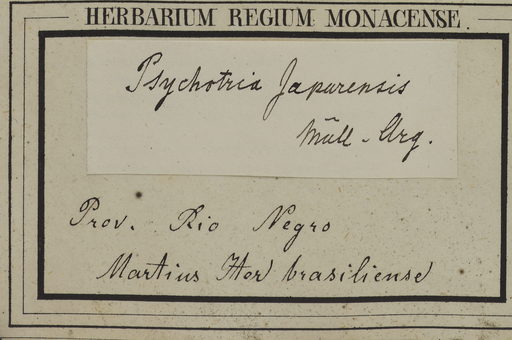 HERBARIUM REGIUM MONACENSE.
Psychotria Japurensis
Müll-Arg.
Prov. Rio Negro
Martius Iter brasiliense